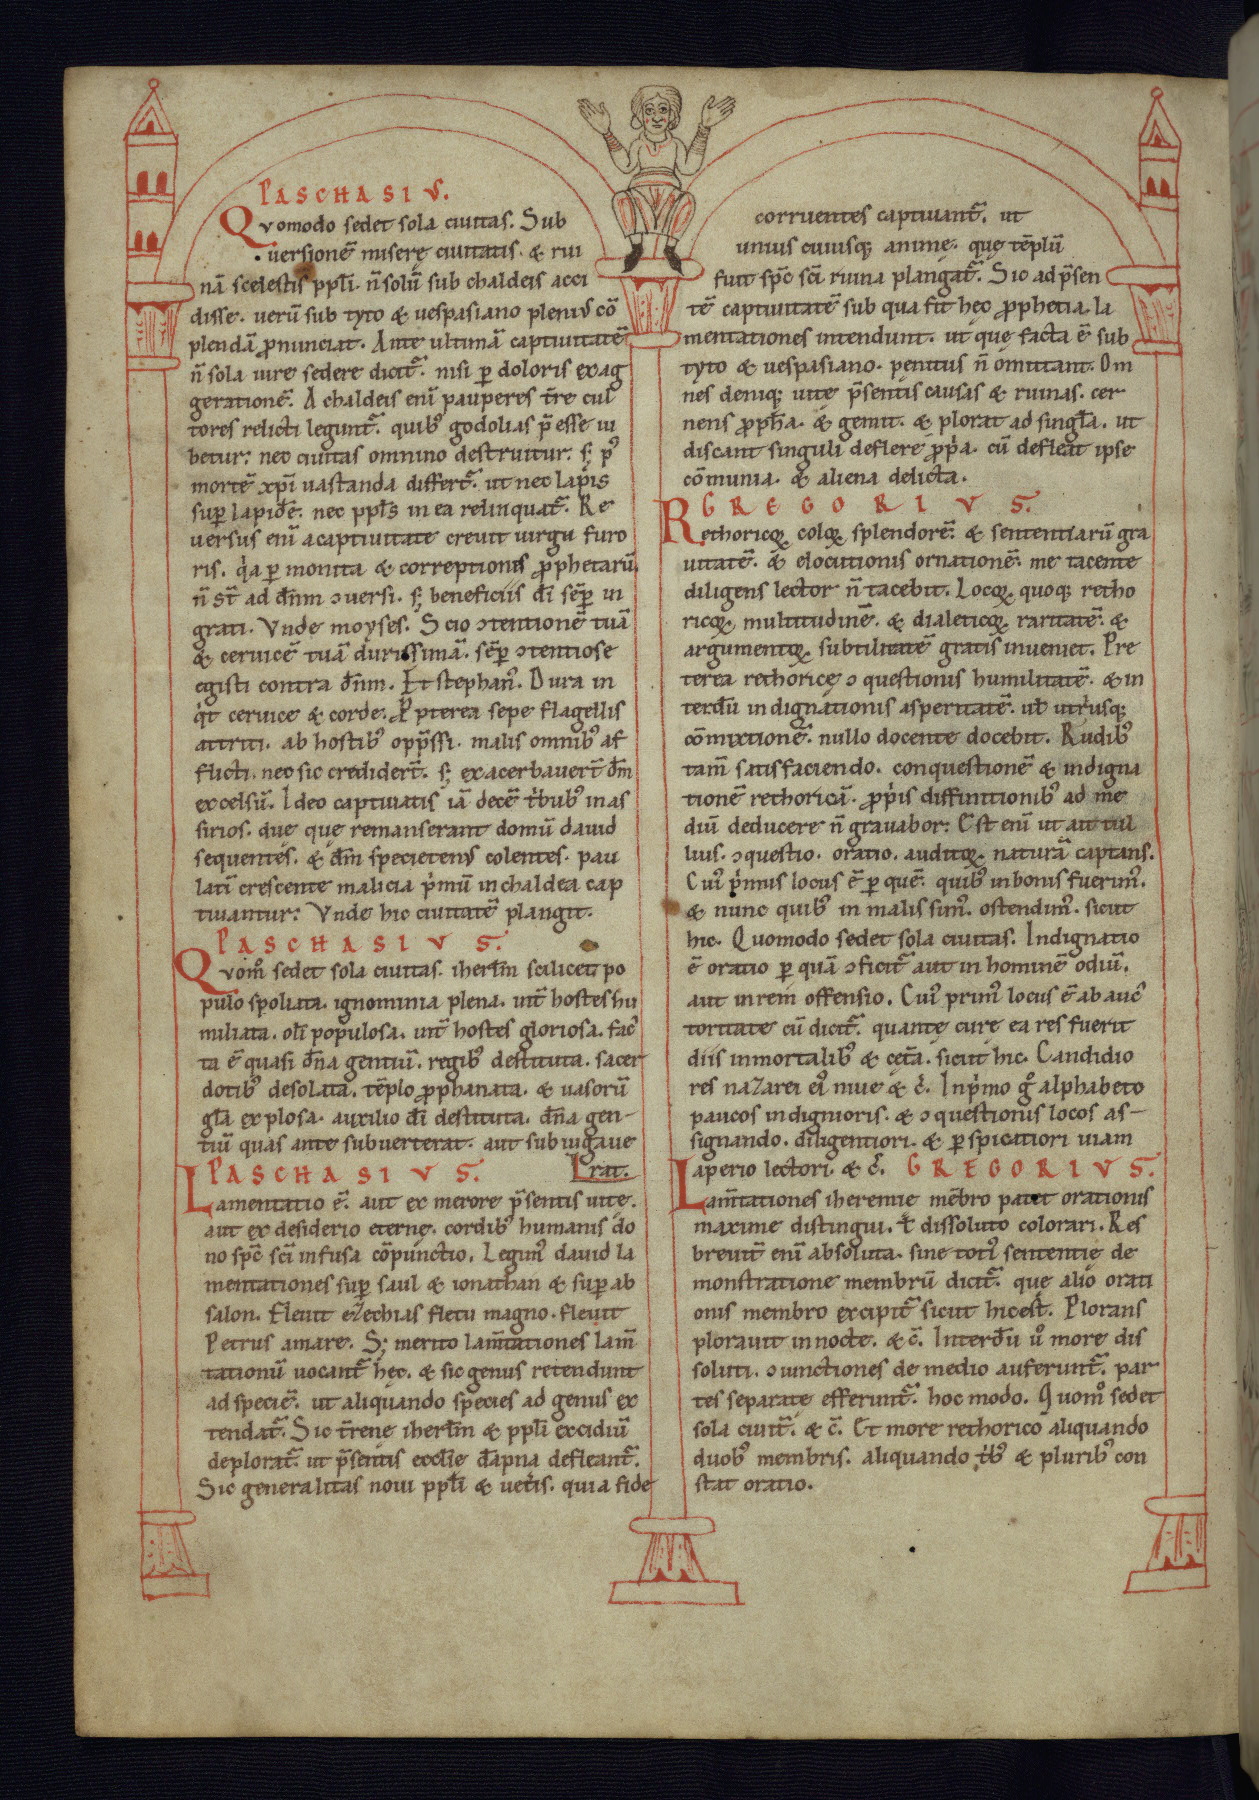 PASCHASIVS.
Qvomodo sedet sola ciuitas. Sub
uersionē miserę ciuitatis. & rui
nā scelestis ppl̄i. n̄ solū sub chaldeis acci
disse. uerū sub tyto & uespasiano pleniꝰ cō
plendā ꝓnunciat. Ante ultimā captiuitatē
n̄ sola iure sedere dicit᷑. nisi ꝑ doloris exag
gerationē. A chaldeis enī pauperes t̄re cul
tores relicti legunt᷑. quibꝰ godolias p̄esse iu
betur; nec ciuitas omnino destruitur; sꝫ pꝰ
mortē xp̄i uastanda differt᷑. ut nec lapis
suꝑ lapidē. nec ppl̄s in ea relinquat᷑. Re
uersus enī a captiuitate creuit uirgu furo
ris. q̇a ꝑ monita & correptionis ꝓphetarū
n̄ st̄ ad dn̄m ↄuersi. sꝫ beneficiis dī sēꝑ in
grati. Vnde moyses. Scio ↄtentionē tuā
& ceruicē tuā durissimā. sēꝑ ↄtentiose
egisti contra dn̄m. Et stephanꝰ. Dura in
q̇t ceruice & corde. Ꝓpterea sepe flagellis
attriti. ab hostibꝰ opp̄ssi. malis omnibꝰ af
flicti. nec sic crediderт᷑. sꝫ exacerbauer̄t dm̄
excelsū. Ideo captiuatis iā decē tribubꝰ in as
sirios. due quę remanserant domū dauid
sequentes. & dm̄ specietenꝰ colentes. pau
latī crescente malicia p̍mū in chaldea cap
tiuantur; Vnde hic ciuitatē plangit.
PASCHASIVS.
Qvomᵒ sedet sola ciuitas. iherl̄m scilicet po
pulo spoliata. ignominia plena. int̄ hostes hu
miliata. olī populosa. int̄ hostes gloriosa. fac
ta ē quasi dn̄a gentiū. regibꝰ destituta. sacer
dotibꝰ desolata. tēplo ꝓphanata. & uasorū
gl̄a explosa. auxilio dī destituta. dn̄a gen-
tiū quas ante subuerterat. aut subiugaue
PASCHASIVS. rat.
Lamentatio ē. aut ex merore p̄sentis uite.
aut ex desiderio eterne. cordibꝰ humanis do
no sp̄c sc̄i infusa cōpunctio. Legimꝰ dauid la
mentationes suꝑ saul & ionathan & suꝑ ab
salon. Fleuit ezechias fletu magno. fleuit
Petrus amare. Sꝫ merito lam̄tationes lam̄
tationū uocant᷑ hęc. & sic genus retendunt
ad speciē. ut aliquando species ad genus ex
tendat᷑. Sic t̄rene iherl̄m & ppl̄i excidiū
deplorat᷑. ut p̄sentis eccl̄ie dāpna defleant᷑.
Sic generalitas noui ppl̄i & uet̍is. quia fide
corruentes captiuant᷑. ut
unius cuiusqꝫ anime. quę tēplū
fuit sp̄c sc̄i ruina plangat᷑. Sic ad p̄sen
tē captiuitatē sub qua fit hec ꝓphetia. la
mentationes intendunt. ut quę facta ē sub
tyto & uespasiano. penitus n̄ omittant. Om
nes deniqꝫ uite p̄sentis causas & ruinas. cer
nens ꝓph̄a. & gemit. & plorat ad singl̄a. ut
discant singuli deflere ꝓp̍a. cū defleat ipse
cōmunia. & aliena delicta.
GREGORIVS.
Rethoricoꝝ coloꝝ splendorē. & sententiarū gra
uitatē. & elocutionis ornationē. me tacente
diligens lector n̄ tacebit. Locoꝝ quoqꝫ retho
ricoꝝ multitudinē. & dialeticoꝝ raritatē. &
argumentoꝝ subtilitatē gratis inueniet. Pre
terea rethorice ↄquestionis humilitatē. & in
terdū indignationis asperitatē. ut̄ utriusqꝫ
cōmixtionē. nullo docente docebit. Rudibꝰ
tam̄ satisfaciendo. conquestionē & indigna
tionē rethoricā. ꝓp̍is diffinitionibꝰ ad me
diū deducere n̄ grauabor; Est enī ut ait tul
lius. ↄquestio. oratio. auditoꝝ naturā captans.
Cuiꝰ p̍mus locus ē ꝑ quē. quibꝰ in bonis fuerimꝰ.
& nunc quibꝰ in malis simꝰ. ostendimꝰ. sicut
hic. Quomodo sedet sola ciuitas. Indignatio
ē oratio ꝑ quā ↄficit᷑ aut in hominē odiū.
aut in rem offensio. Cuiꝰ primꝰ locus ē ab auc
toritate cū dicit᷑. quante cure ea res fuerit
diis inmortalibꝰ & cet̄a. sicut hic. Candidio
res nazarei eiꝰ niue & c̄. In p̍mo gͦ alphabeto
paucos indignioris. & ↄquestionis locos as-
signando. diligentiori. & ꝑspicatiori uiam
aperio lectori. & c̄. GREGORIVS.
Lam̄tationes iheremie mēbro patet orationis
maxime distingui. ł dissoluto colorari. Res
breuit̄ enī absoluta. sine totiꝰ sententię de
monstratione membrū dicit᷑. quę alio orati
onis membro excipit᷑ sicut hic est. Plorans
plorauit in nocte. & c̄. Interdū uͦ more dis
soluti. ↄiunctiones de medio auferunt᷑. par
tes separate efferunt᷑. hoc modo. Quomᵒ sedet
sola ciuit̄. & c̄. Et more rethorico aliquando
duobꝰ membris. aliquando t̍bꝰ & pluribꝰ con
stat oratio.